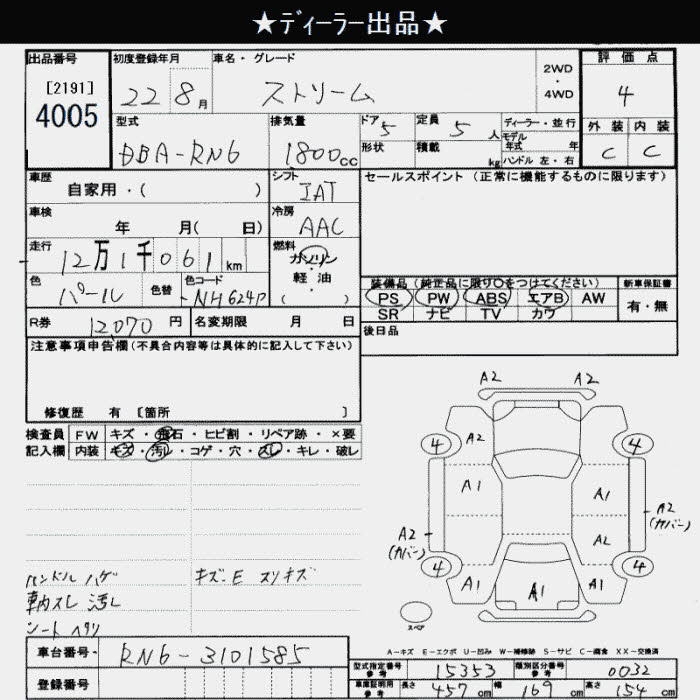 ★ディーラー出品★
出品番号 初度登録年月 車名・グレード 2WD・4WD 評価点
[2191] 4005 22 8月 ストリーム 4
型式 排気量 ドア 5 定員 5人 ディーラー・並行 外装 内装
DBA-RN6 1800cc 形状 積載 kg モデル年式 年 ハンドル 左・右 C C
車歴 自家用・( ) シフト IAT セールスポイント(正常に機能するものに限ります)
車検 年 月( 日) 冷房 AAC
走行 12万1千061km 燃料 ガソリン・軽油
色 パール 色替 色コード NH624P ( )
装備品(純正品に限り○をつけてください) 新車保証書
PS PW ABS エアB AW 有・無
SR ナビ TV カワ
R券 12070円 名変期限 月 日 後日品
注意事項申告欄(不具合内容等は具体的に記入して下さい)
修復歴 有 [箇所 ]
検査員 FW キズ・飛石・ヒビ割・リペア跡・×要
記入欄 内装 キズ・汚レ・コゲ・穴・スレ・キレ・破レ
A2 A2
4 A2 4
A1 A1
A2(カバー) A2 A2(カバー)
4 4
A1 A1 A1
スペア
ハンドル ハゲ キズ・E スリキズ
車内スレ 汚レ
シート ヘタリ
A-キズ E-エクボ U-凹み W-補修跡 S-サビ C-腐食 XX-交換済
車台番号 RN6-3101585
登録番号
型式指定番号 参考 15353 類別区分番号 参考 0032
車庫証明用 参考 長さ 457cm 幅 169cm 高さ 154cm